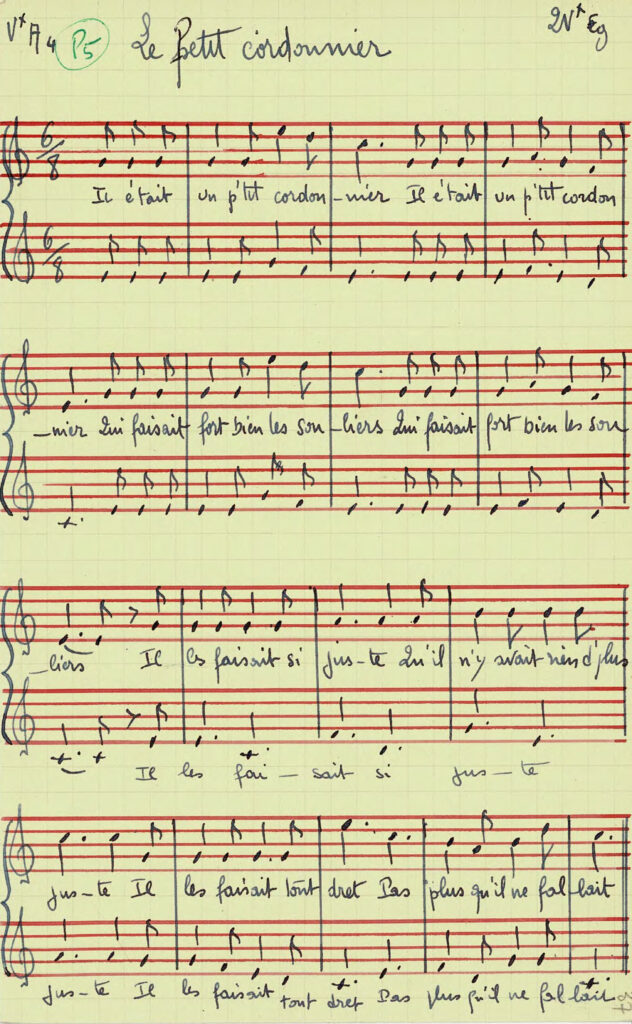 V* A4 P5 Le petit cordonnier 2V* Eg
6/8
Il était un p'tit cordon -nier Il était un p'tit cordon
6/8
-nier Qui faisait fort bien les sou -liers Qui faisait fort bien les sou
-liers Il les faisait si jus-te Qu'il n'y avait rien d'plus
Il les fai-sait si jus-te
jus-te Il les faisait tout dret Pas plus qu'il ne fal-lait
jus-te Il les faisait tout dret Pas plus qu'il ne fal lait